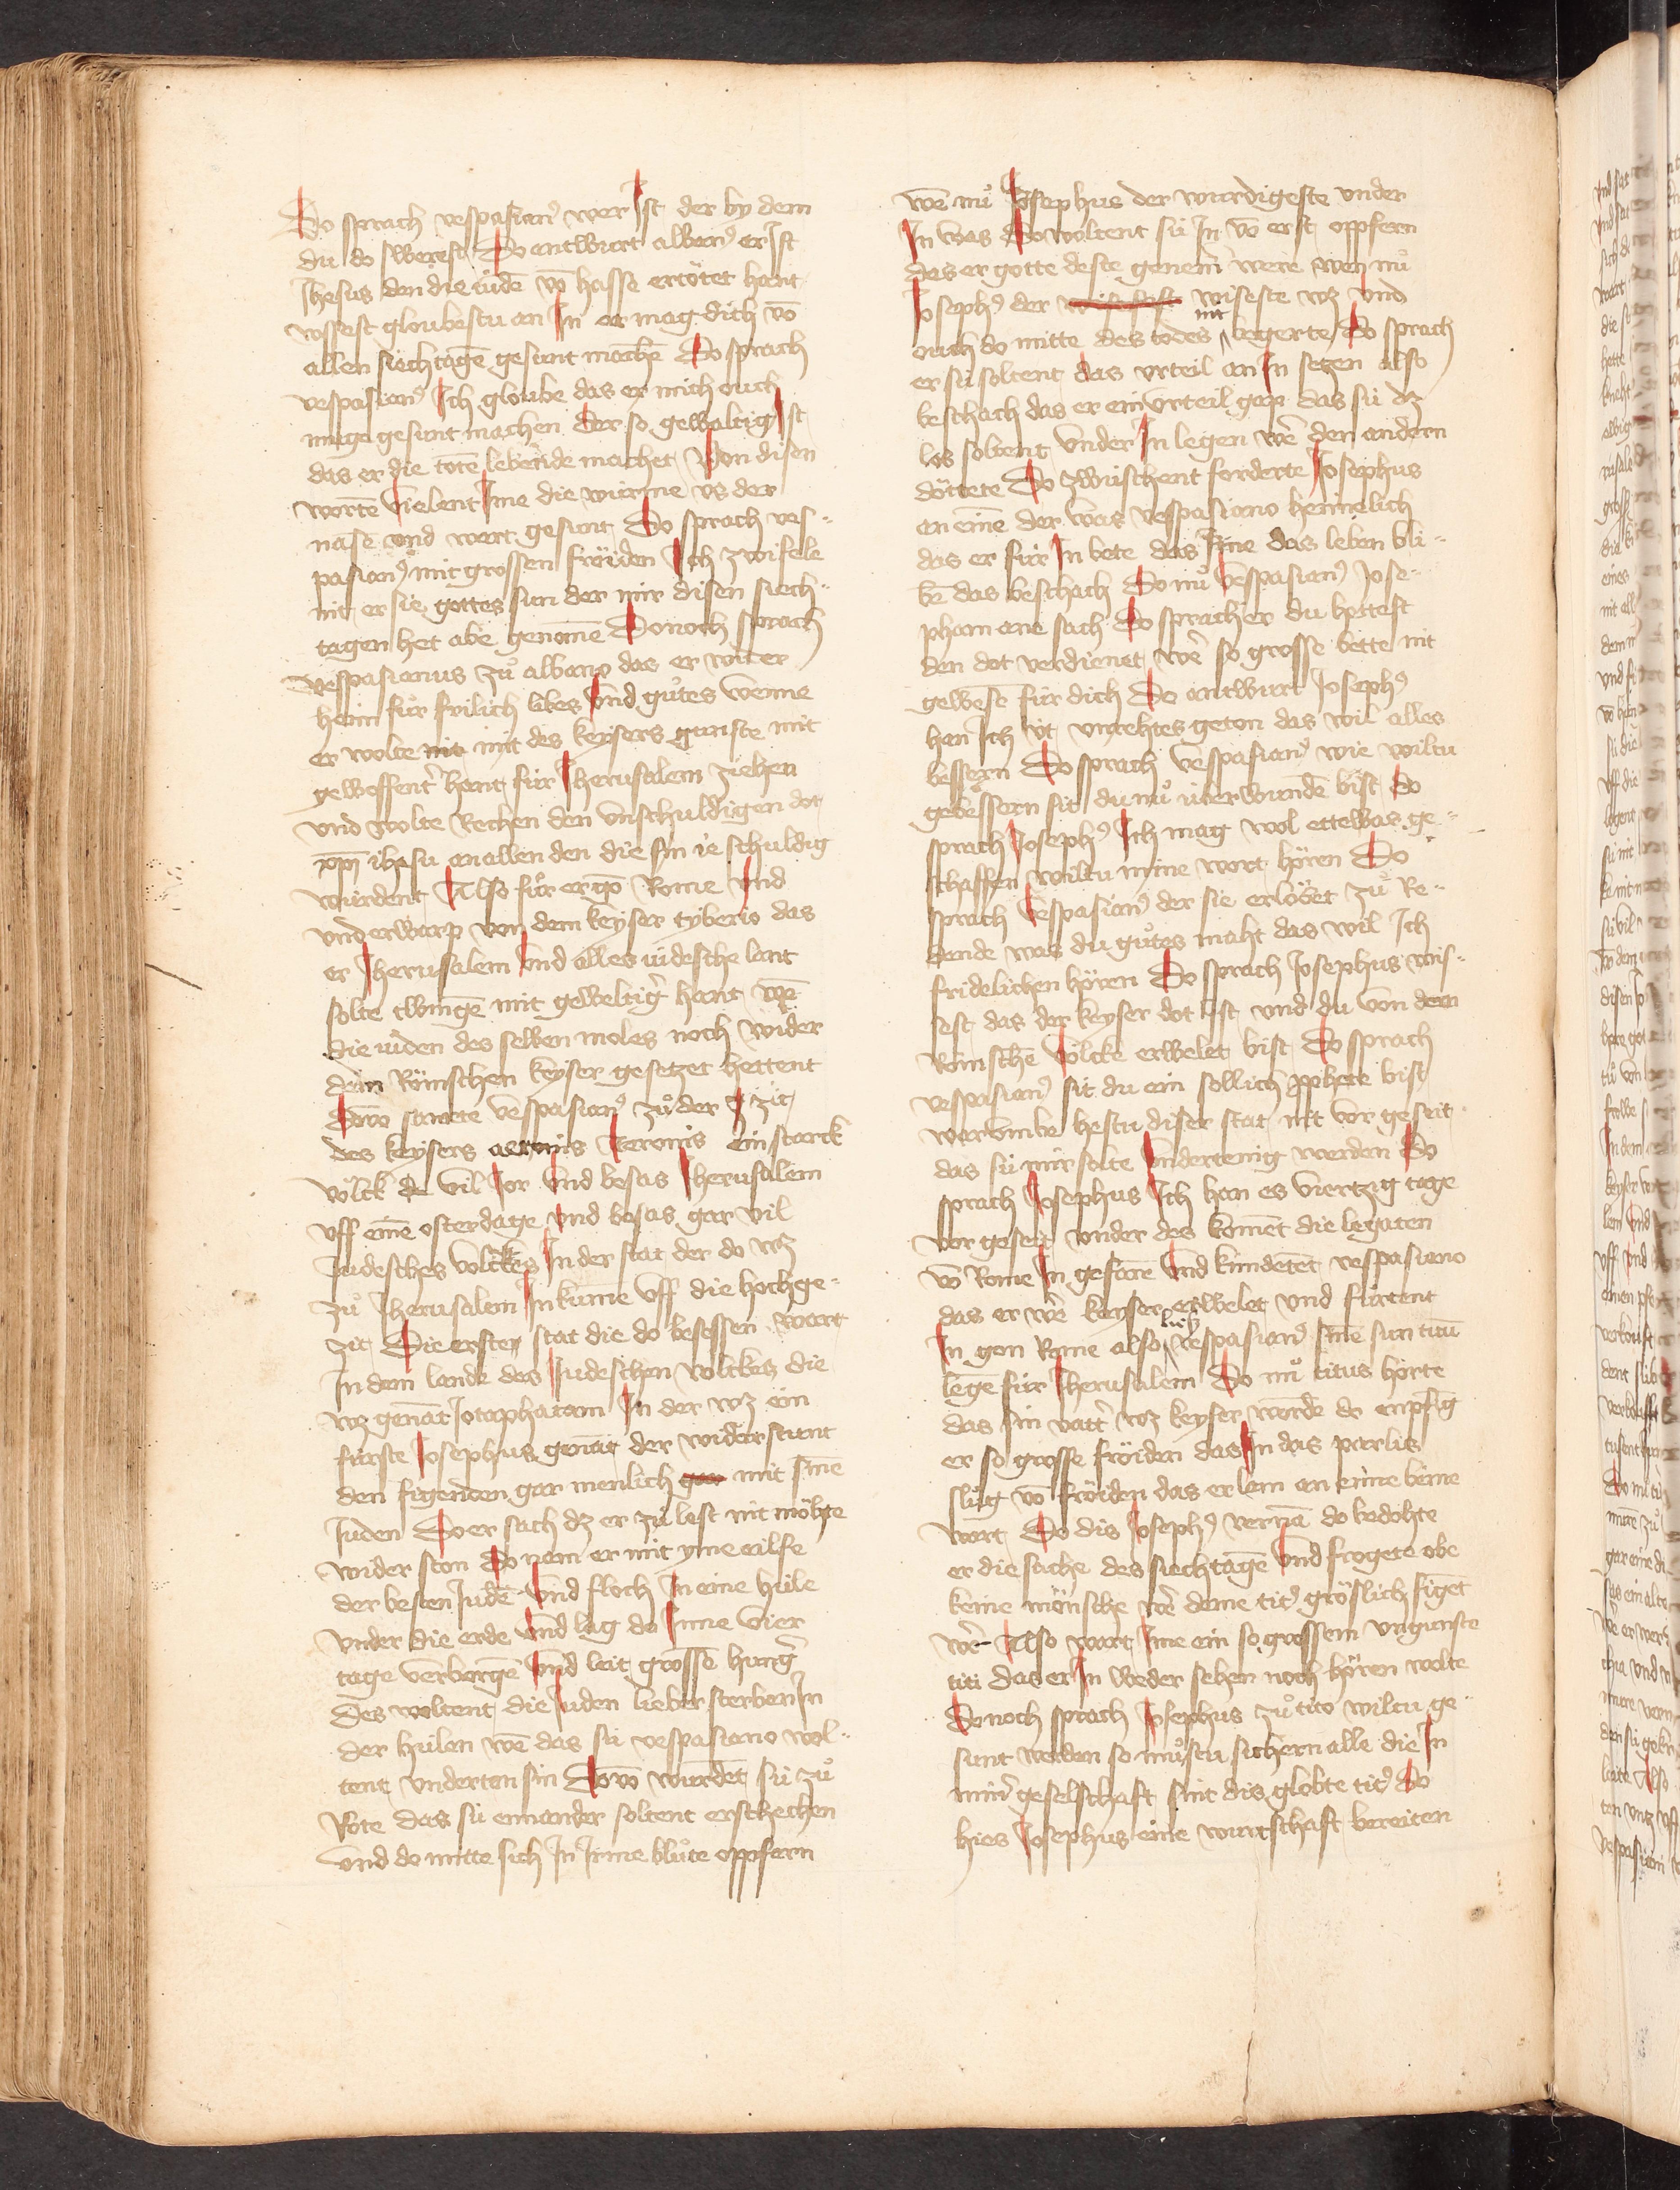 Do sprach vespasianꝰ wer Ist der by dem
du do swerest Do entwurt albanꝰ er Ist
Jhesus den die iudē vō hasse ertötet hant
vssest gloubestu an Jn er mag dich vō
allen siechtagē gesunt machē Do sprach
vespasianꝰ Jch gloube das er mich ouch
müge gesunt machen der so gewaltig Ist
das er die totē lebende machet Von disen
wortē vielent Jme die würme vs der
nase vnd wart gesunt Do sprach ves⸗
pasianꝰ mit grossen fröiden Jch zwifele
nit er sie gottes sun der mir disen siech⸗
tagen het abe genomē Donoch sprach
vespasianus zů albano das er wider
heim fůr frilich libes vnd gůtes wenne
er wolte mit des keysers gunste mit
gewoffent' hant für Jherusalem ziehen
vnd wolte Rechen den vnschuldigen dot
xp̄i ihesu an allen den die sin ie schuldig
wurdent Also fůr er gō Rome vnd
vnd erwarp von dem keyser tyberio das
er Jherusalem vnd alles iüdesche lant
solte twingē mit geweltig' hant wē
die iuden des selben moles noch wider
dem Römschen keyser gesetzet hettent
Dovō samete vespasianꝰ zů der zit
des keysers Neronis ein starck
völck vil Jor vnd besas Jherusalem
vff eime osterdage vnd besas gar vil
Judesches volckes Jn der stat der do wz
zů Jherusalem Jn kumē vff die hochge⸗
zit Die erste stat die do besessen wart
Jn dem lande des Judeschen volckes die
wz genāt Jotapharam Jn der wz ein
fürste Josephus genāt der widerstunt
den figenden gar menlich mit sinē
Juden Do er sach dz er zů lest nit möhte
wider ston Do nam er mit yme eilfe
der besten Judē vnd floch Jn eine hüle
vnder die erde vnd lag do Jnne vier
tage verborgē vnd leit grossē hung'
Des woltent die Juden lieber sterben Jn
der hülen wē das sü vespasiano wol⸗
tent vnderton sin Dovō wurdēt sü zů
Rote das sü einander soltent erstechen
vnd do mitte sich Jn Jrme blůte oppfern
wē nů Josephus der wurdigeste vnder
Jn was Do woltent sü Jn vō erst oppfern
das er gotte deste genem were wen nů
Josephꝰ der wiseste wz vnd
ouch do mitte des todes nit begerte Do sprach
er sü soltent das vrteil an Jn setzen also
beschach das er ein vrteil gap das sü dz
los soltent vnder Jn legen wē den andern
döttete Do zwüschent forderte Josephus
an einē der was vespasiano heimelich
das er für Jn bete das Jme das leben bli⸗
be das beschach Do nů vespasianꝰ Jose⸗
pham ane sach Do sprach er du hettest
den dot verdienet wē so grosse bette nit
gewesē für dich Do antwurt Josephꝰ
han Jch üt vnrehtes geton das wil alles
bessern Do sprach vespasianꝰ wie wiltu
gebessern sit du nů überwundē bist Do
sprach Josephꝰ Jch mag wol ettewas ge⸗
schaffen wiltu mine wort hören Do
sprach vespasianꝰ der sie erlöbet zů Re⸗
dende was du gůtes maht das wil Jch
fridelichen hören Do sprach Josephus wis⸗
sest das der keyser dot Ist vnd du von dem
Römschē völcke erwelet bist Do sprach
vespasianꝰ sit du ein sollich ꝓphete bist
warumbe hestu diser stat nit vor geseit
das sü mir solte vndertenig werden Do
sprach Josephus Jch han es viertzig tage
vor geseit vnder des komēt die legaten
vō Rome Jn gefarē vnd kündetēt vespasiano
das er wē keyser erwelet vnd fürtent
Jn gen Rome also liesz vespasianꝰ sinē sun titū
legē für Jherusalem Do nů titus horte
das sin vatt' wz keyser wordē do enpfīg
er so grosse fröiden das Jn das parlis
slůg vō fröiden das er lam an eime beine
wart Do dis Josephꝰ vernā do bedohte
er die sache des siechtagē vnd frogete obe
keine mönsche wē deme titꝰ gröslich figēt
wē Also wart Jme ein so grossem vngunste
titi das er Jn weder sehen noch hören wolte
Donoch sprach Josephus zů tito wiltu ge⸗
sunt werden so můstu sichern alle die Jn
min' geselschaft sint dis globte titꝰ Do
hies Josephus eine wurtschaft bereiten